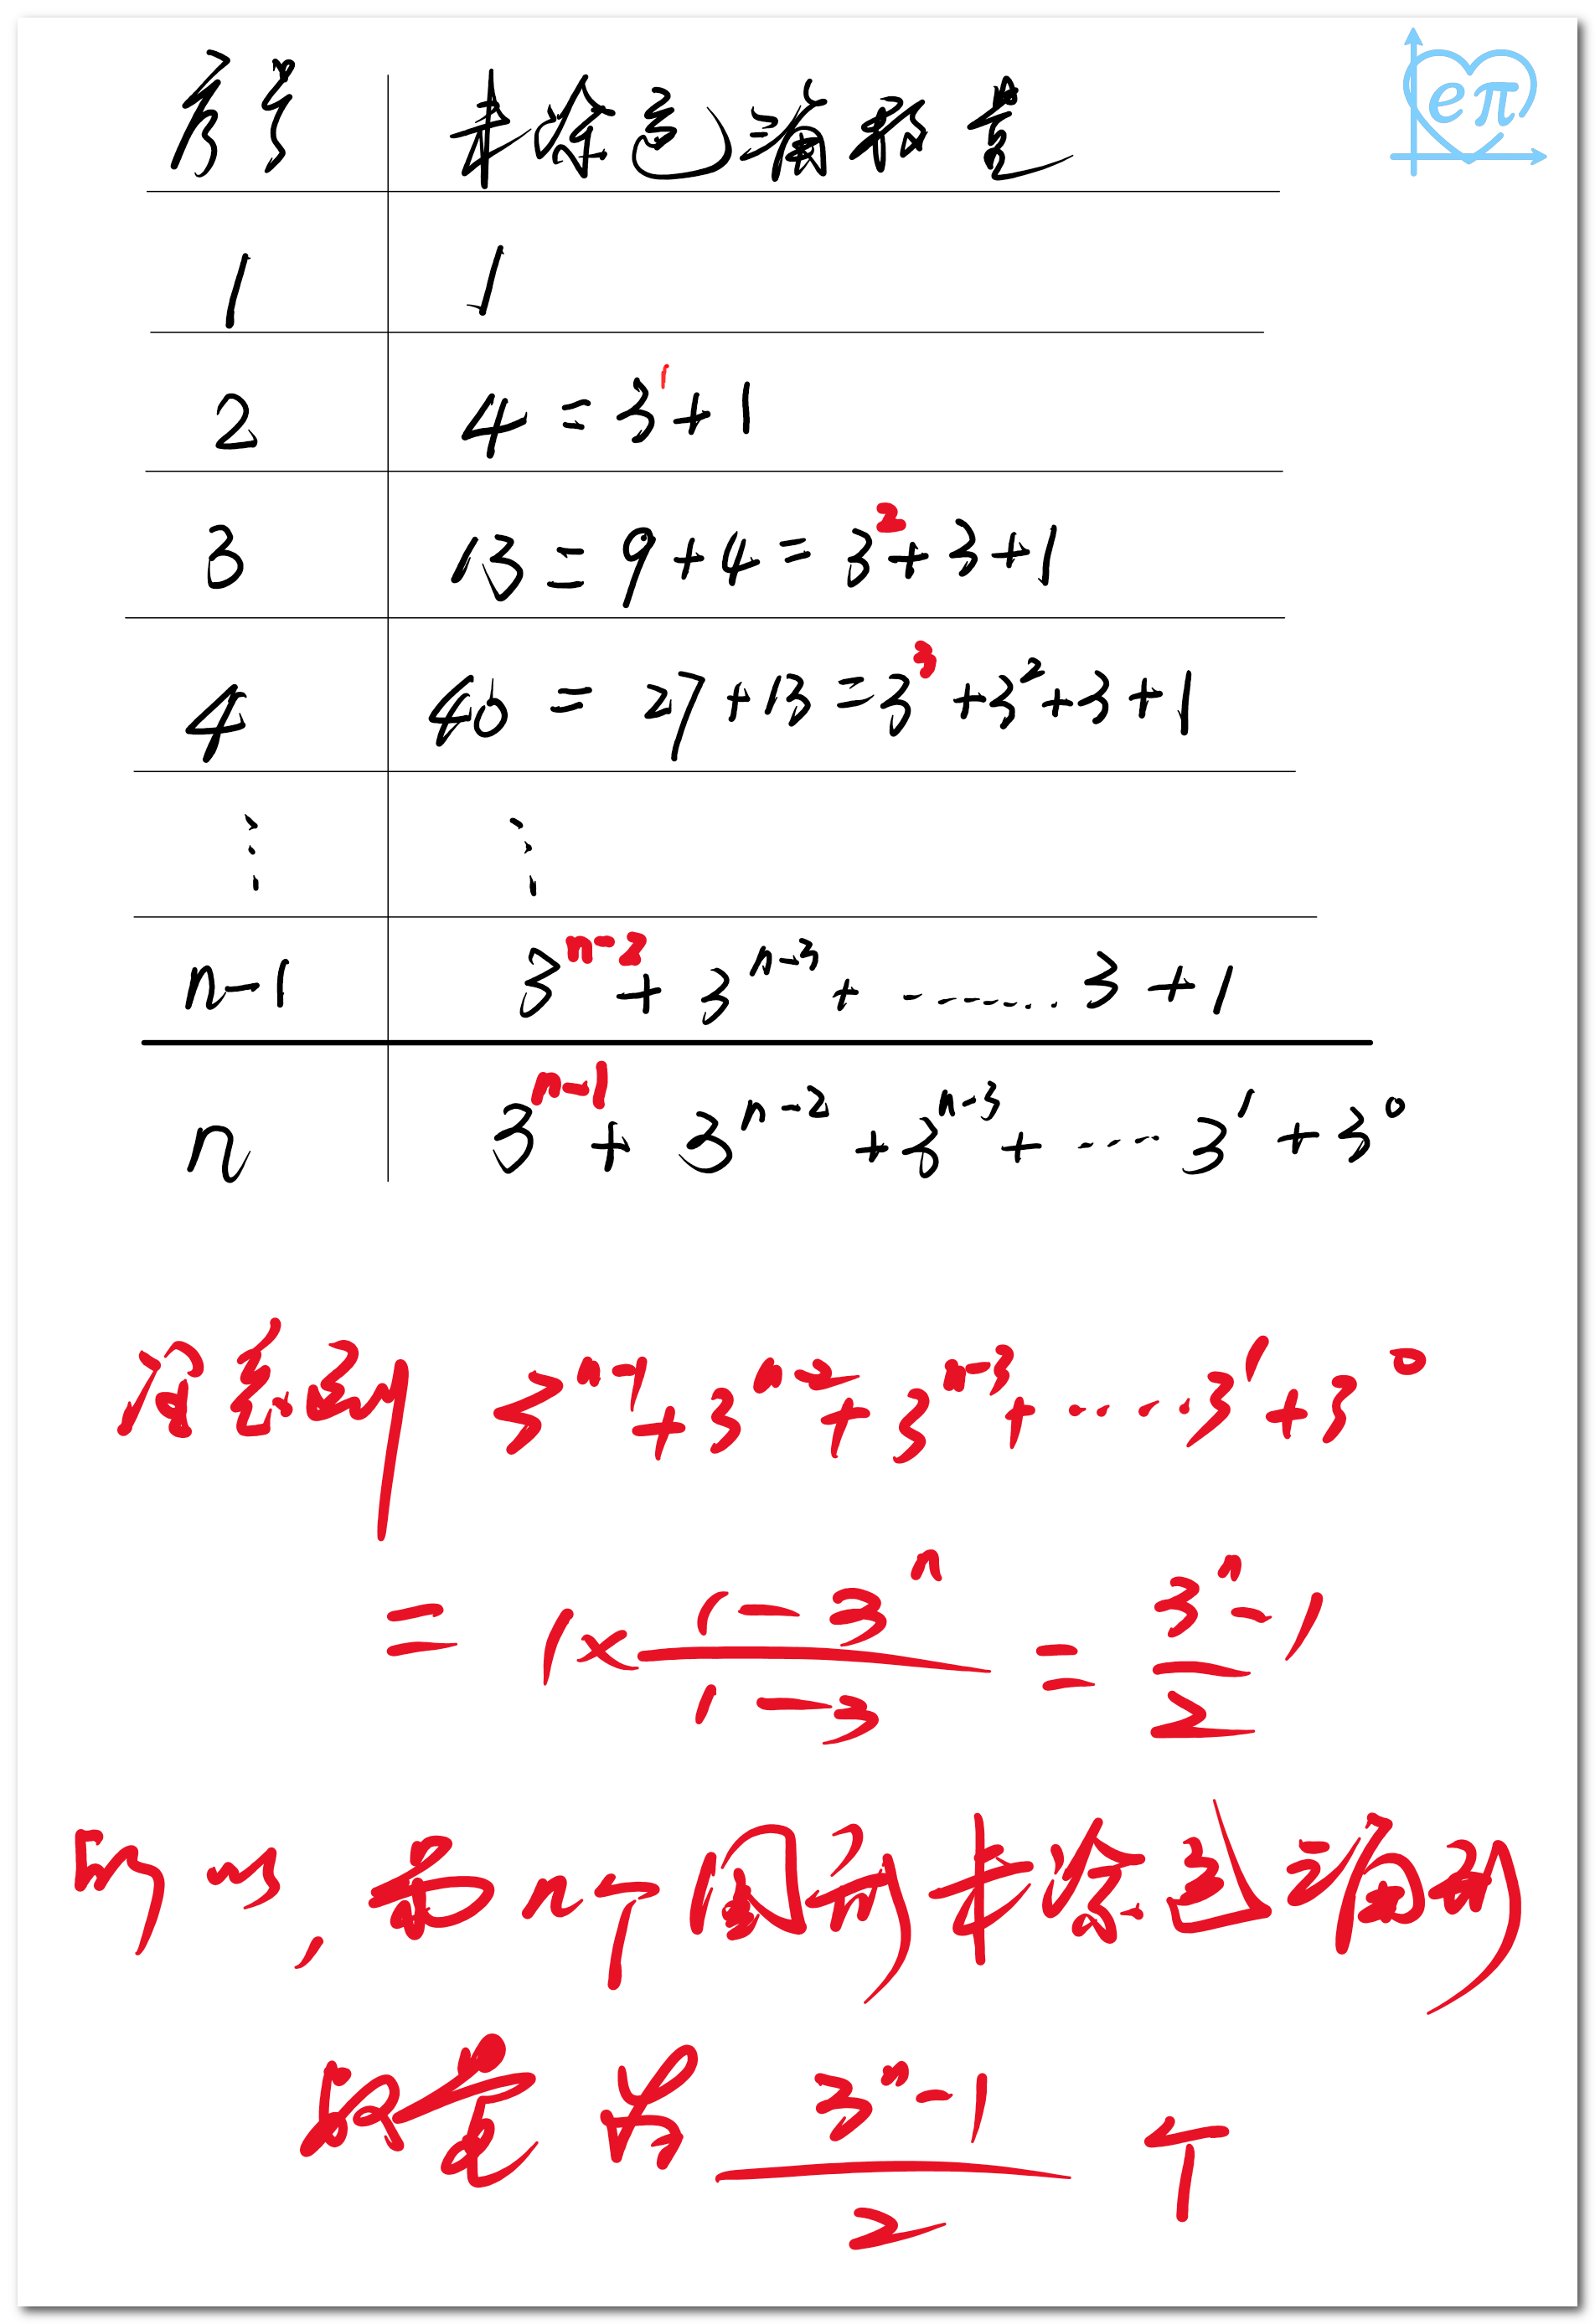 序号 未涂色满数量
1 1
2 4 = 3¹ + 1
3 13 = 9 + 4 = 3² + 3 + 1
4 40 = 27 + 13 = 3³ + 3² + 3 + 1
⋮ ⋮
n-1 3ⁿ⁻² + 3ⁿ⁻³ + ........ 3 + 1
n 3ⁿ⁻¹ + 3ⁿ⁻² + 3ⁿ⁻³ + ····· 3¹ + 3⁰
3ⁿ⁻¹ + 3ⁿ⁻² + 3ⁿ⁻³ + ····· 3¹ + 3⁰
= 1 × (1-3ⁿ)/(1-3) = (3ⁿ-1)/2
所以, 第n个图形未涂色满的
数量为 (3ⁿ-1)/2 个
eπ